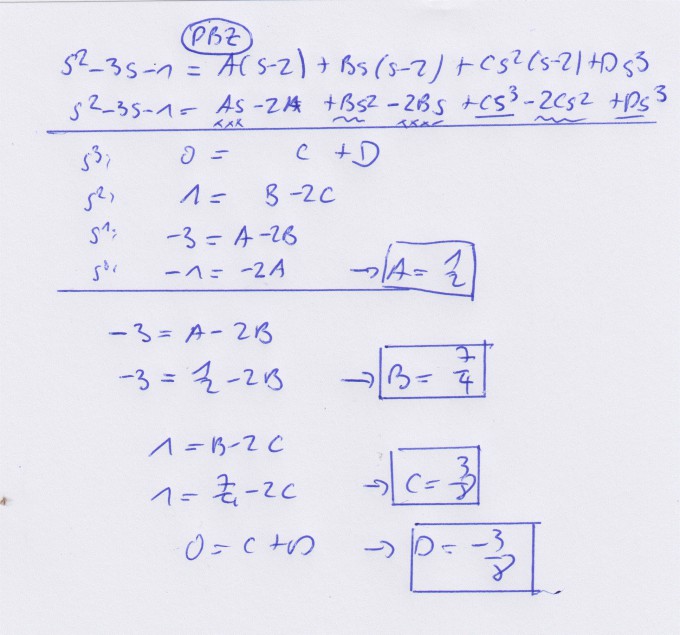 PBZ
s²-3s-1 = A(s-2) + Bs(s-2) + Cs²(s-2) + Ds³
s²-3s-1 = As - 2A + Bs² - 2Bs + Cs³ - 2Cs² + Ds³
s³: 0 = C + D
s²: 1 = B - 2C
s¹: -3 = A - 2B
s⁰: -1 = -2A → A = 1/2
-3 = A - 2B
-3 = 1/2 - 2B → B = 7/4
1 = B - 2C
1 = 7/4 - 2C → C = 3/8
0 = C + D → D = -3/8